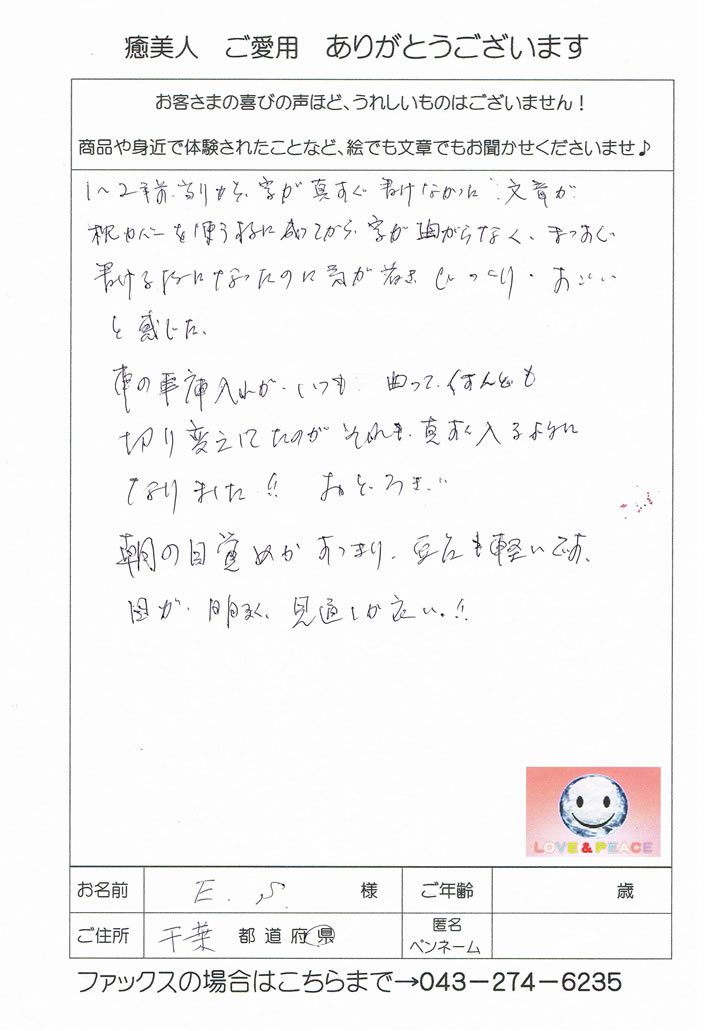 癒美人 ご愛用 ありがとうございます
お客さまの喜びの声ほど、うれしいものはございません！
商品や身近で体験されたことなど、絵でも文章でもお聞かせくださいませ♪
1～2年前 字が真すぐ書けなかた 文章が
枕カバーを使う様に成ってから、字が曲がらなく、まっすぐ
書ける様になったのに気が着き びっくり・
と感じた。
車の車庫入れが、いつも 曲って、何んども
切り変えしてたのが それも、真すぐ入るように
なりました!! おどろき
朝の目覚めがあっさり、 も軽いです、
目が、明るく、見通しが良い。!!
LOVE & PEACE
お名前 E. S. 様 ご年齢 歳
ご住所 千葉 都道府県 匿名ペンネーム
ファックスの場合はこちらまで→043－274－6235